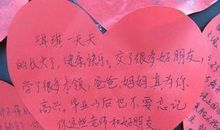 琪琪一天天
的长大了，健康快乐，交了很多好朋友
学了很多本领，爸爸妈妈真为你
高兴，毕业以后也不要忘记
你这些老师和好朋友